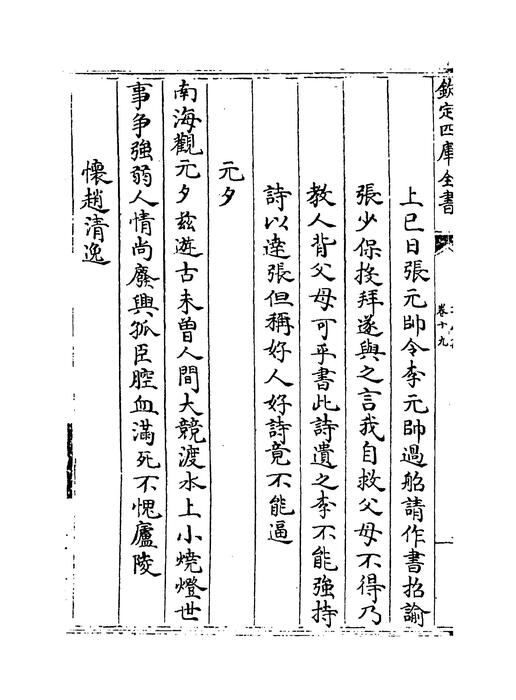 欽定四庫全書
卷十九
上巳日張元帥令李元帥過船請作書招諭
張少保投拜遂與之言我自救父母不得乃
教人背父母可乎書此詩遺之李不能強持
詩以達張但稱好人好詩竟不能逼
元夕
南海觀元夕兹遊古未曾人間大競渡水上小燒燈世
事爭強弱人情尚廢興孤臣腔血滿死不愧廬陵
懷趙清逸